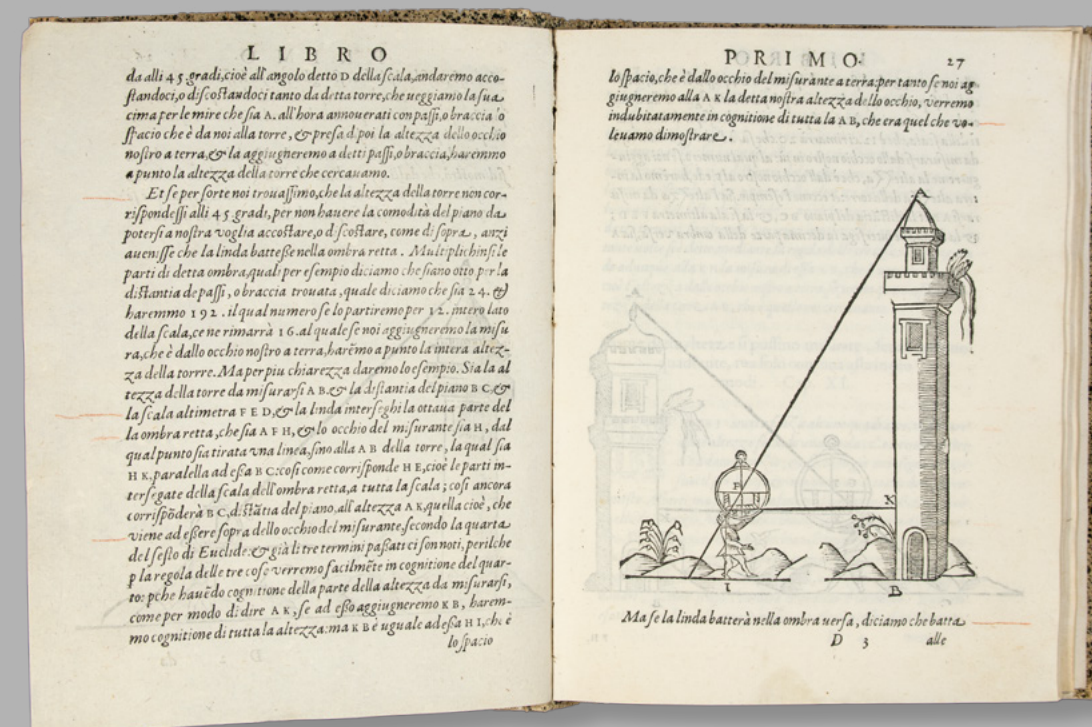 LIBRO
da alli 45. gradi, cioè all'angolo detto D della scala, andaremo acco-
standoci, o discostandoci tanto da detta torre, che veggiamo la sua
cima per le mire che sia A. all'hora annouerati con passi, o braccia lo
spacio che è da noi alla torre, & presa dipoi la altezza dello occhio
nostro a terra, & la aggiugneremo a detti passi, o braccia, haremmo
a punto la altezza della torre che cercauamo.
Et se per sorte noi trouassimo, che la altezza della torre non cor-
rispondessi alli 45. gradi, per non hauere la comodità del piano da
potersi a nostra voglia accostare, o discostare, come di sopra, anzi
auenisse che la linda battesse nella ombra retta. Multiplichinsi le
parti di detta ombra, quali per esempio diciamo che siano otto per la
distantia de passi, o braccia trouata, quale diciamo che sia 24. &
haremmo 192. il qual numero se lo partiremo per 12. intero lato
della scala, ce ne rimarrà 16. al quale se noi aggiugneremo la misu
ra, che è dallo occhio nostro a terra, harēmo a punto la intera altez-
za della torrre. Ma per piu chiarezza daremo lo esempio. Sia la al
tezza della torre da misurarsi AB. & la distantia del piano BC, &
la scala altimetra FED, & la linda interseghi la ottaua parte del
la ombra retta, che sia AFH, & lo occhio del misurante sia H, dal
qual punto sia tirata vna linea, sino alla AB della torre, la qual sia
HK, paralella ad essa BC: cosi come corrisponde HE, cioè le parti in-
tersegate della scala dell'ombra retta, a tutta la scala; cosi ancora
corrispōderà BC, distātia del piano, all'altezza AK, quella cioè, che
viene ad essere sopra dello occhio del misurante, secondo la quarta
del sesto di Euclide: & già li tre termini passati ci son noti, perilche
p la regola delle tre cose verremo facilmēte in cognitione del quar-
to: pche hauēdo cognitione della parte della altezza da misurarsi,
come per modo di dire AK, se ad esso aggiugneremo KB, harem-
mo cognitione di tutta la altezza: ma KB è uguale ad essa HI, che è
lo spacio
PRIMO. 27
lo spacio, che è dallo occhio del misurante a terra: per tanto se noi ag
giugneremo alla AK la detta nostra altezza dello occhio, verremo
indubitatamente in cognitione di tutta la AB, che era quel che vo-
leuamo dimostrare.
A
F
K
I
B
Ma se la linda batterà nella ombra versa, diciamo che batta
D 3 alle